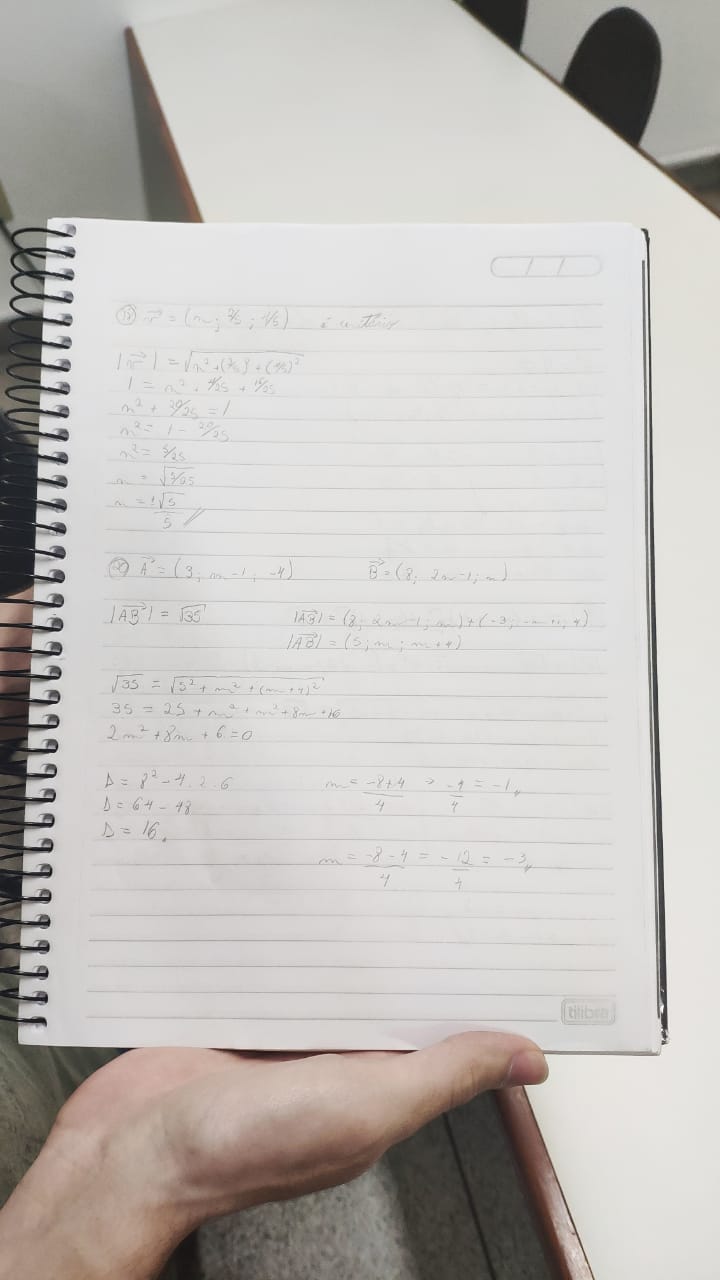 v = (n; 2/5; 4/5) é unitário
|v| = √n² + (2/5)² + (4/5)²
1 = n² + 4/25 + 16/25
n² + 20/25 = 1
n² = 1 - 20/25
n² = 5/25
n = √5/25
n = ±√5/5
A = (3; m-1; -4) B = (8; 2m-1; m)
|AB| = √35 |AB| = (8; 2m-1; m) + (-3; -m+1; 4)
|AB| = (5; m; m+4)
√35 = √5² + m² + (m+4)²
35 = 25 + m² + m² + 8m + 16
2m² + 8m + 6 = 0
Δ = 8² - 4 . 2 . 6 m = -8+4/4 → -4/4 = -1
Δ = 64 - 48
Δ = 16
m = -8-4/4 = -12/4 = -3
tilibra